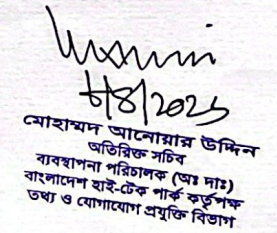 ৮/৪/২০২১
মোহাম্মদ আনোয়ার উদ্দিন
অতিরিক্ত সচিব
ব্যবস্থাপনা পরিচালক (অঃ দাঃ)
বাংলাদেশ হাই-টেক পার্ক কর্তৃপক্ষ
তথ্য ও যোগাযোগ প্রযুক্তি বিভাগ